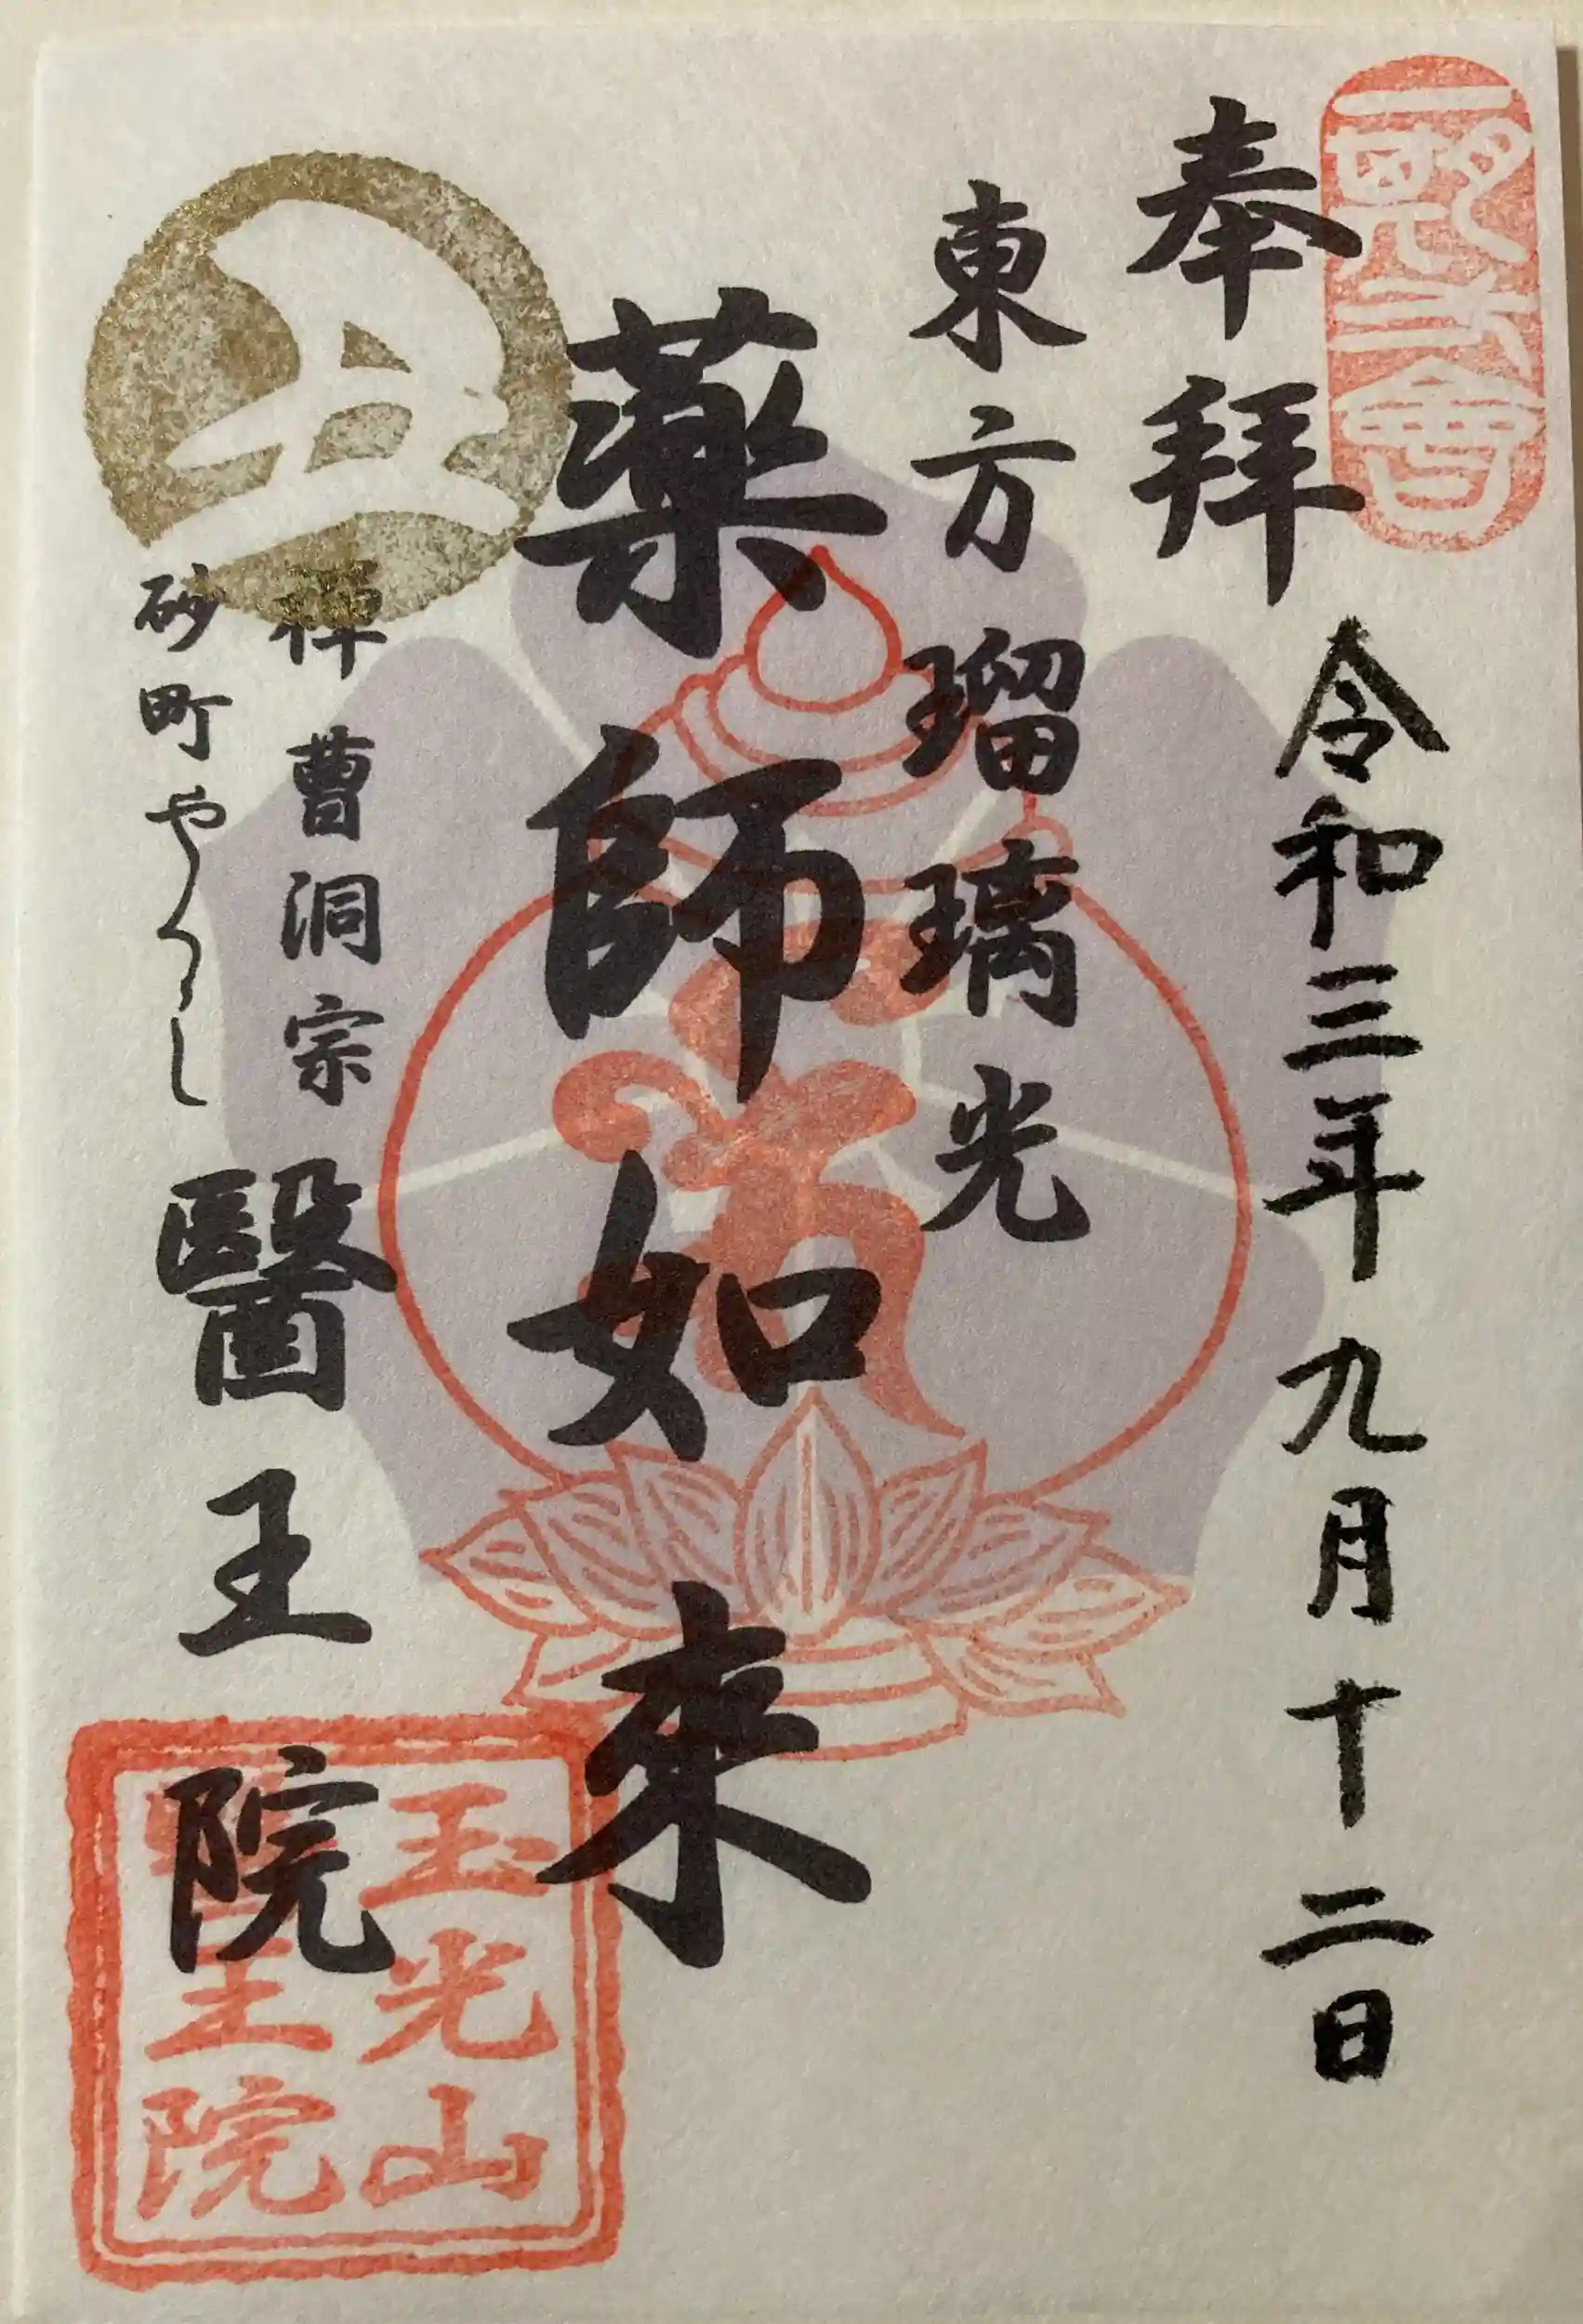 奉拝
令和三年九月十二日
東方瑠璃光
薬師如来
丑
禅曹洞宗
砂町やくし
醫王院
玉光山
醫王院